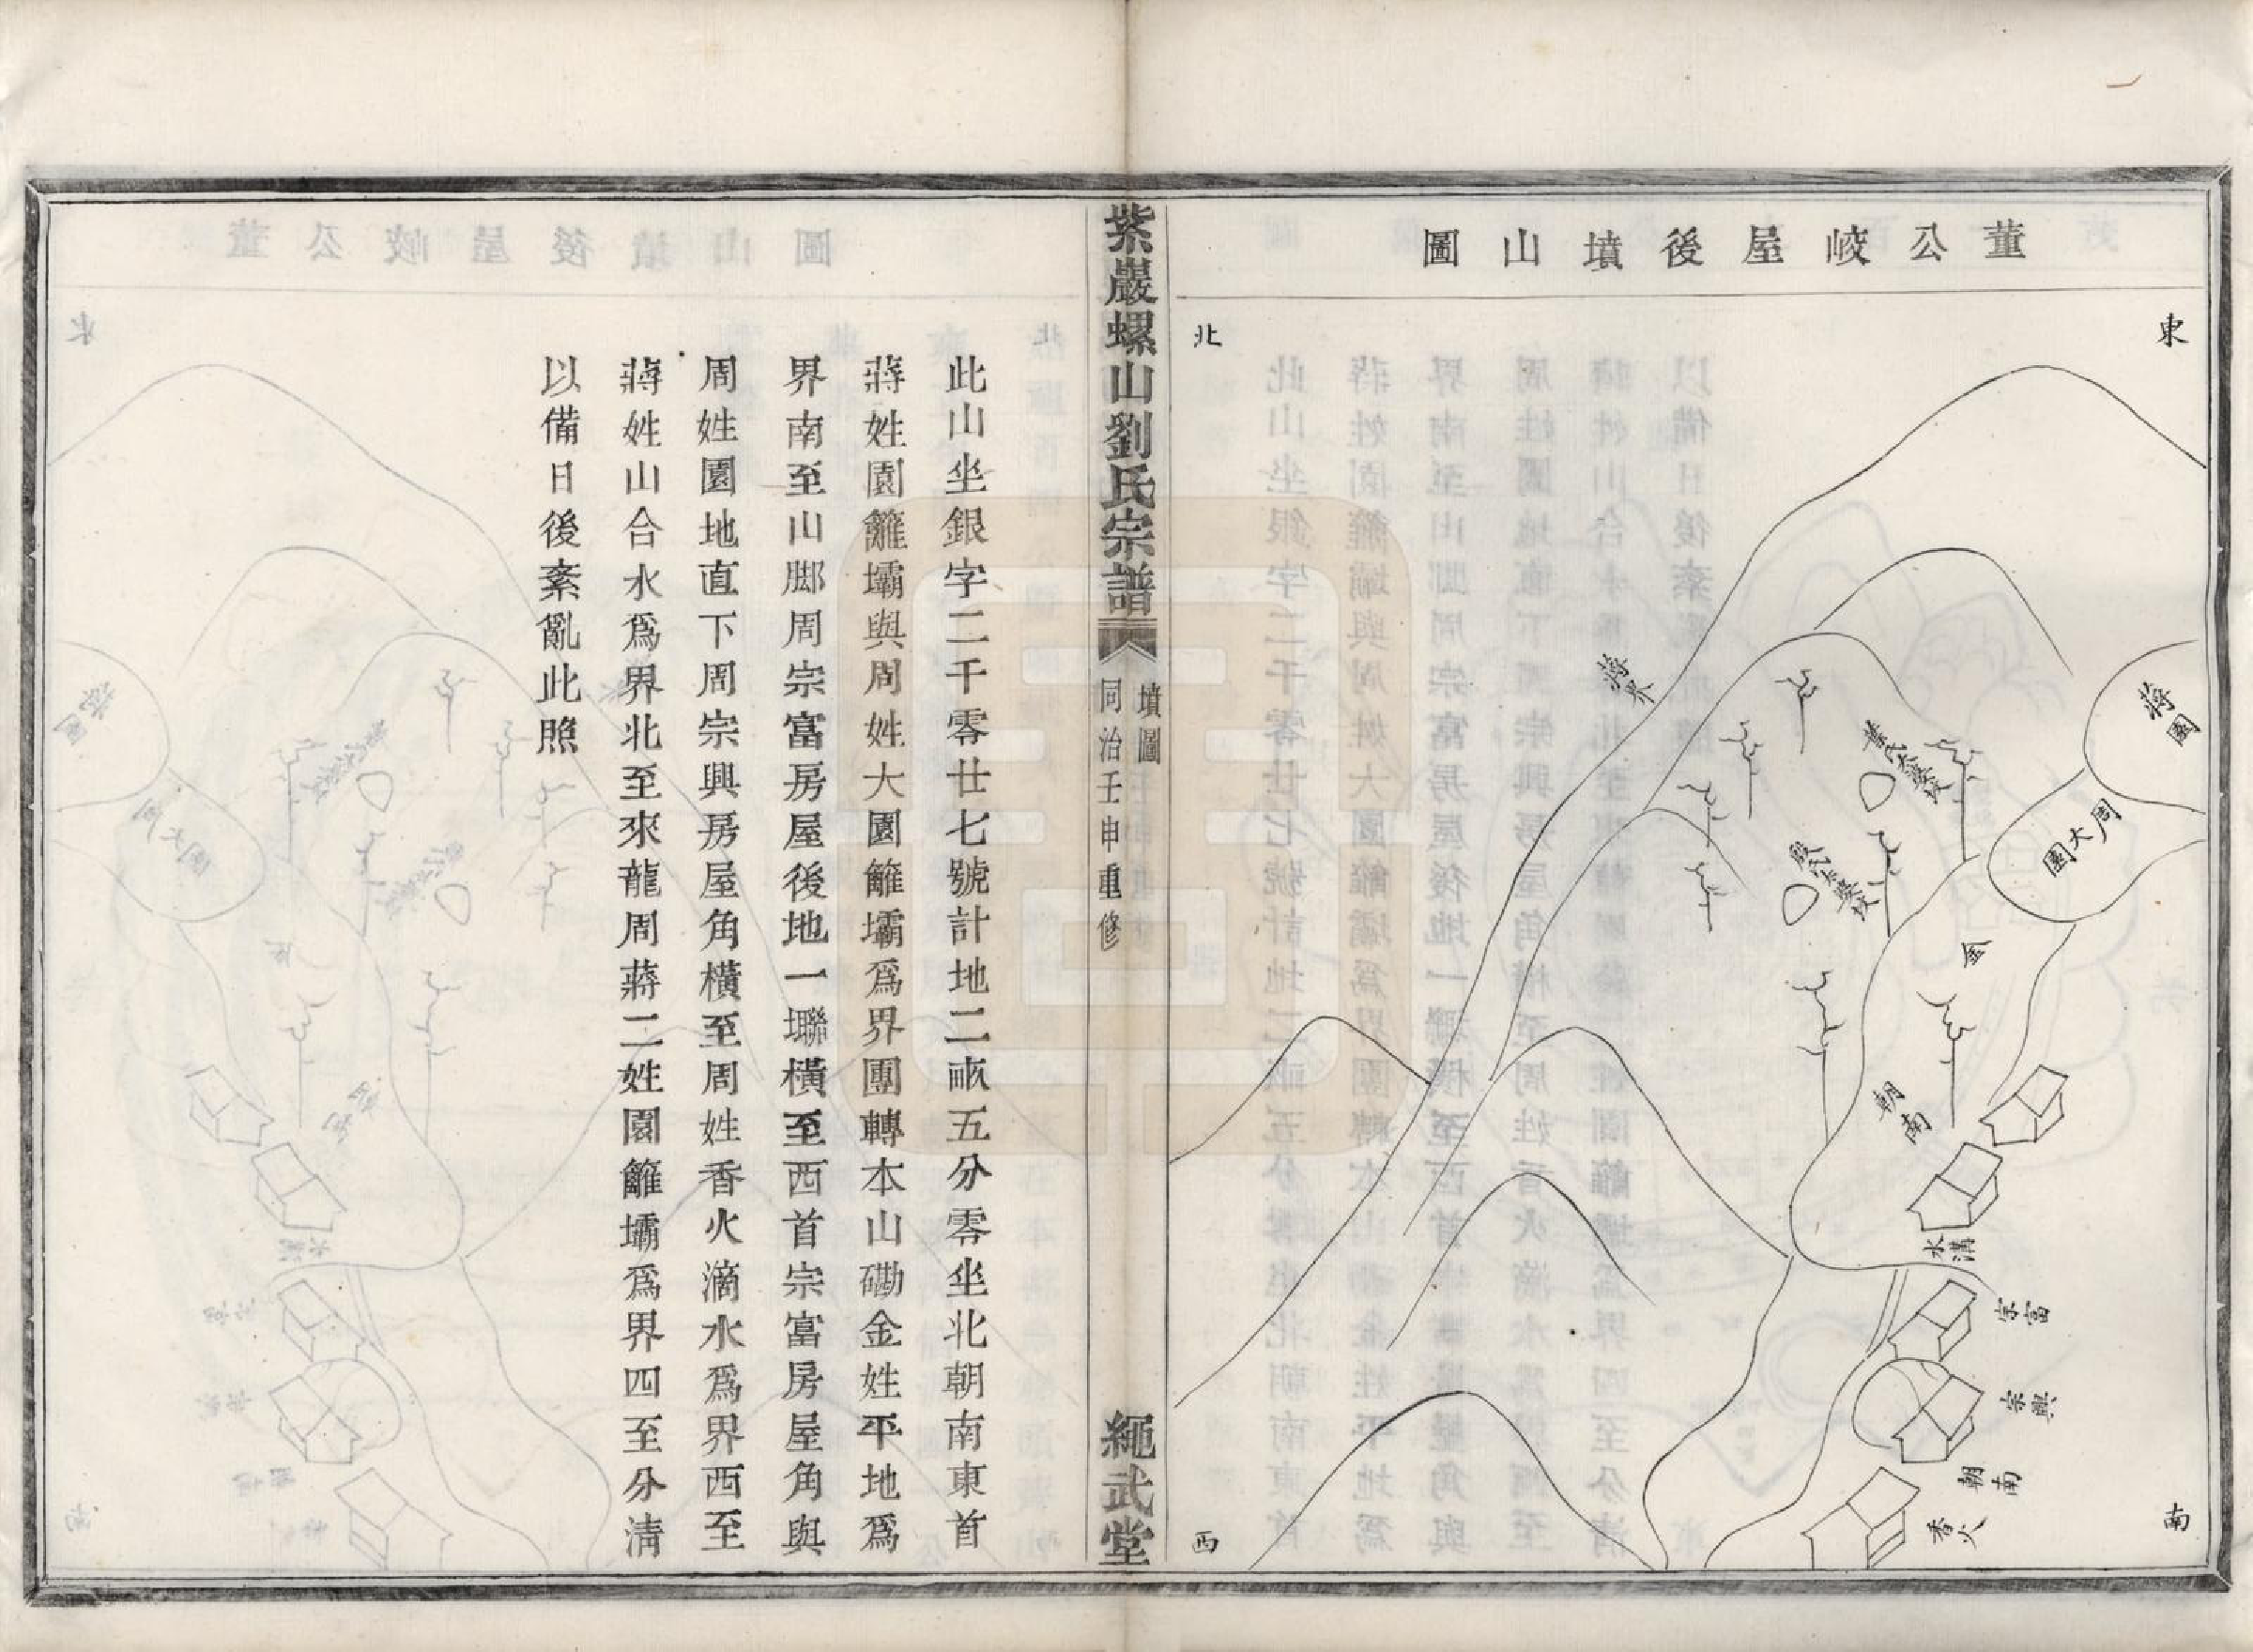 董公峧屋後墳山圖
東
北
南
西
蔣園
周大園
蔣界
葉氏太婆墳
殷氏太婆墳
金
朝南
水溝
宗富
宗興
朝南
香火
紫巖螺山劉氏宗譜
墳圖
同治壬申重修
繩武堂
此山坐銀字二千零廿七號計地二畝五分零坐北朝南東首
蔣姓園籬壩與周姓大園籬壩爲界團轉本山磡金姓平地爲
界南至山脚周宗富房屋後地一塂橫至西首宗富房屋角與
周姓園地直下周宗興房屋角橫至周姓香火滴水爲界西至
蔣姓山合水爲界北至來龍周蔣二姓園籬壩爲界四至分淸
以備日後紊亂此照